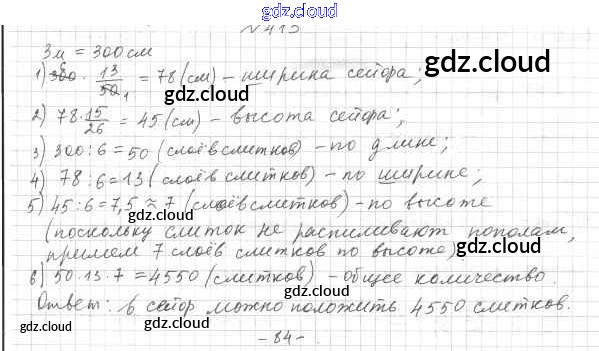 gdz.cloud
N 413
3м = 300 см
gdz.cloud
1) 300 6 · 13/50 1 = 78 (см) – ширина сейфра;
gdz.cloud
gdz.cloud
2) 78 · 15/26 = 45 (см) – высота сейфра;
gdz.cloud
3) 300 : 6 = 50 (слоёв слитков) – по длине;
4) 78 : 6 = 13 (слоёв слитков) – по ширине;
gdz.cloud
gdz.cloud
5) 45 : 6 = 7,5 ≈ 7 (слоёв слитков) – по высоте
(поскольку слиток не распиливают пополам,
примем 7 слоёв слитков по высоте)
gdz.cloud
gdz.cloud
6) 50 · 13 · 7 = 4550 (слитков) – общее количество.
Ответ: в сейф можно положить 4550 слитков.
gdz.cloud
gdz.cloud
– 84 –